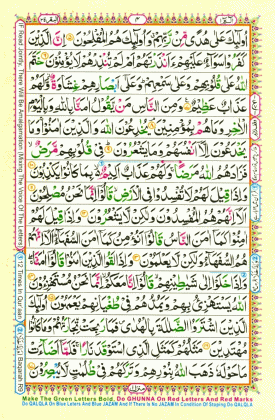 اُولٰٓئِكَ عَلٰى هُدًى مِّنْ رَّبِّهِمْ وَاُولٰٓئِكَ هُمُ الْمُفْلِحُوْنَ اِنَّ الَّذِيْنَ
كَفَرُوْا سَوَآءٌ عَلَيْهِمْ ءَاَنْذَرْتَهُمْ اَمْ لَمْ تُنْذِرْهُمْ لَا يُؤْمِنُوْنَ خَتَمَ
اللّٰهُ عَلٰى قُلُوْبِهِمْ وَعَلٰى سَمْعِهِمْ وَعَلٰٓى اَبْصَارِهِمْ غِشَاوَةٌ وَّلَهُمْ
عَذَابٌ عَظِيْمٌ وَمِنَ النَّاسِ مَنْ يَّقُوْلُ اٰمَنَّا بِاللّٰهِ وَبِالْيَوْمِ
الْاٰخِرِ وَمَا هُمْ بِمُؤْمِنِيْنَ يُخٰدِعُوْنَ اللّٰهَ وَالَّذِيْنَ اٰمَنُوْا وَمَا
يَخْدَعُوْنَ اِلَّآ اَنْفُسَهُمْ وَمَا يَشْعُرُوْنَ فِيْ قُلُوْبِهِمْ مَّرَضٌ
فَزَادَهُمُ اللّٰهُ مَرَضًا وَلَهُمْ عَذَابٌ اَلِيْمٌ بِمَا كَانُوْا يَكْذِبُوْنَ
وَاِذَا قِيْلَ لَهُمْ لَا تُفْسِدُوْا فِى الْاَرْضِ قَالُوْٓا اِنَّمَا نَحْنُ مُصْلِحُوْنَ
اَلَآ اِنَّهُمْ هُمُ الْمُفْسِدُوْنَ وَلٰكِنْ لَّا يَشْعُرُوْنَ وَاِذَا قِيْلَ لَهُمْ
اٰمِنُوْا كَمَآ اٰمَنَ النَّاسُ قَالُوْٓا اَنُؤْمِنُ كَمَآ اٰمَنَ السُّفَهَآءُ اَلَآ اِنَّهُمْ
هُمُ السُّفَهَآءُ وَلٰكِنْ لَّا يَعْلَمُوْنَ وَاِذَا لَقُوا الَّذِيْنَ اٰمَنُوْا قَالُوْٓا اٰمَنَّا
وَاِذَا خَلَوْا اِلٰى شَيٰطِيْنِهِمْ قَالُوْٓا اِنَّا مَعَكُمْ اِنَّمَا نَحْنُ مُسْتَهْزِءُوْنَ
اَللّٰهُ يَسْتَهْزِئُ بِهِمْ وَيَمُدُّهُمْ فِيْ طُغْيَانِهِمْ يَعْمَهُوْنَ اُولٰٓئِكَ
الَّذِيْنَ اشْتَرَوُا الضَّلٰلَةَ بِالْهُدٰى فَمَا رَبِحَتْ تِّجَارَتُهُمْ وَمَا كَانُوْا
مُهْتَدِيْنَ مَثَلُهُمْ كَمَثَلِ الَّذِى اسْتَوْقَدَ نَارًا فَلَمَّآ اَضَآءَتْ
مَا حَوْلَهٗ ذَهَبَ اللّٰهُ بِنُوْرِهِمْ وَتَرَكَهُمْ فِيْ ظُلُمٰتٍ لَّا يُبْصِرُوْنَ
Make The Green Letters Bold, Do GHUNNA On Red Letters And Red Marks
Do QALQLA On Blue Laters And Blue JAZAM And If There Is No JAZAM In Condition Of Stoping Do QALQLA